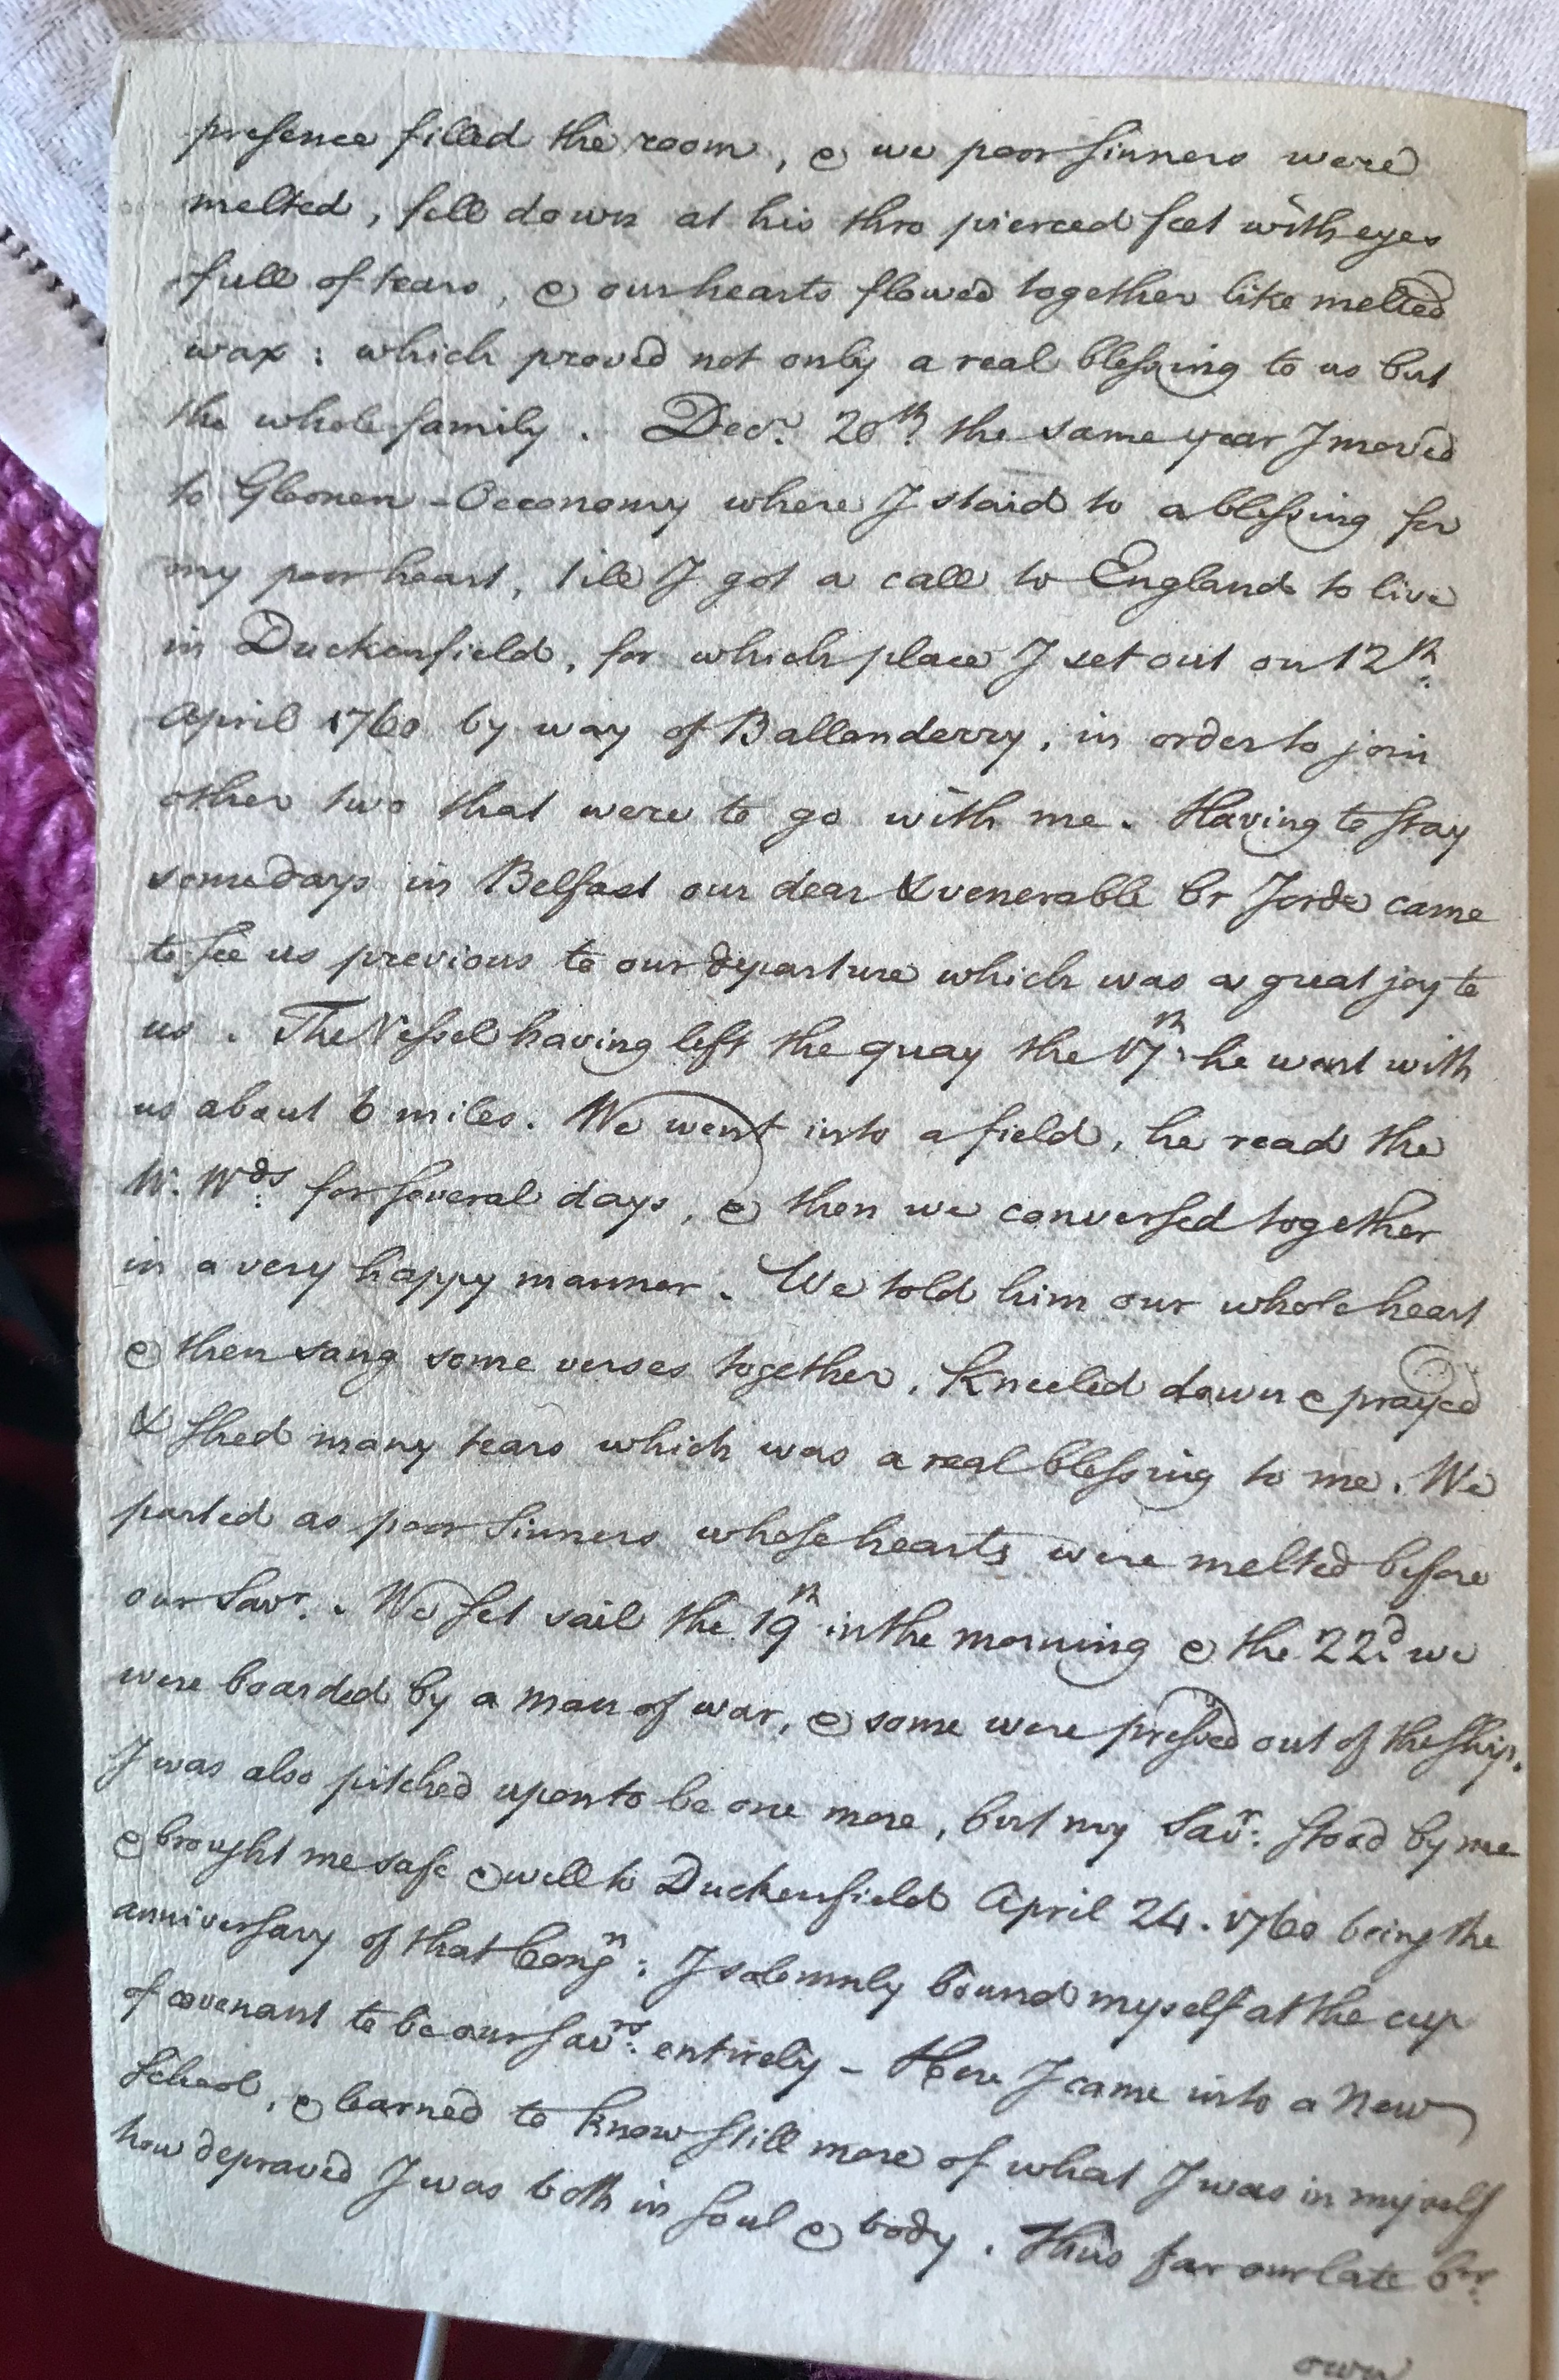 presence filled the room, & we poor sinners were
melted, fell down at his thro pierced feet with eyes
full of tears, & our hearts flowed together like melted
wax: which proved not only a real blessing to us but
the whole family. Decr. 20th. the same year I moved
to Gloonen-Oeconomy where I staid to a blessing for
my poor heart, till I got a call to England to live
in Duckenfield, for which place I set out on 12th.
April 1760 by way of Ballenderry, in order to join
other two that were to go with me. Having to stay
some days in Belfast our dear & venerable Br Jorde came
to see us previous to our departure which was a great joy to
us. The Vessel having left the quay the 17th. he went with
us about 6 miles. We went into a field, he read the
W. Wds. for several days, & then we conversed together
in a very happy manner. We told him our whole heart
& then sang some verses together, kneeled down & prayed
& shed many tears which was a real blessing to me. We
parted as poor sinners whose hearts were melted before
our Savr.. We set sail the 19th in the morning & the 22d. we
were boarded by a man of war, & some were pressed out of the ship.
I was also pitched upon to be one more, but my Savr: stood by me
& brought me safe & well to Duckenfield April 24. 1760 being the
anniversary of that Congn: I solemnly bound myself at the cup
of covenant to be our Savrs: entirely - Here I came into a new
School, & learned to know still more of what I was in myself
how depraved I was both in soul & body. Thus far our late br.
own